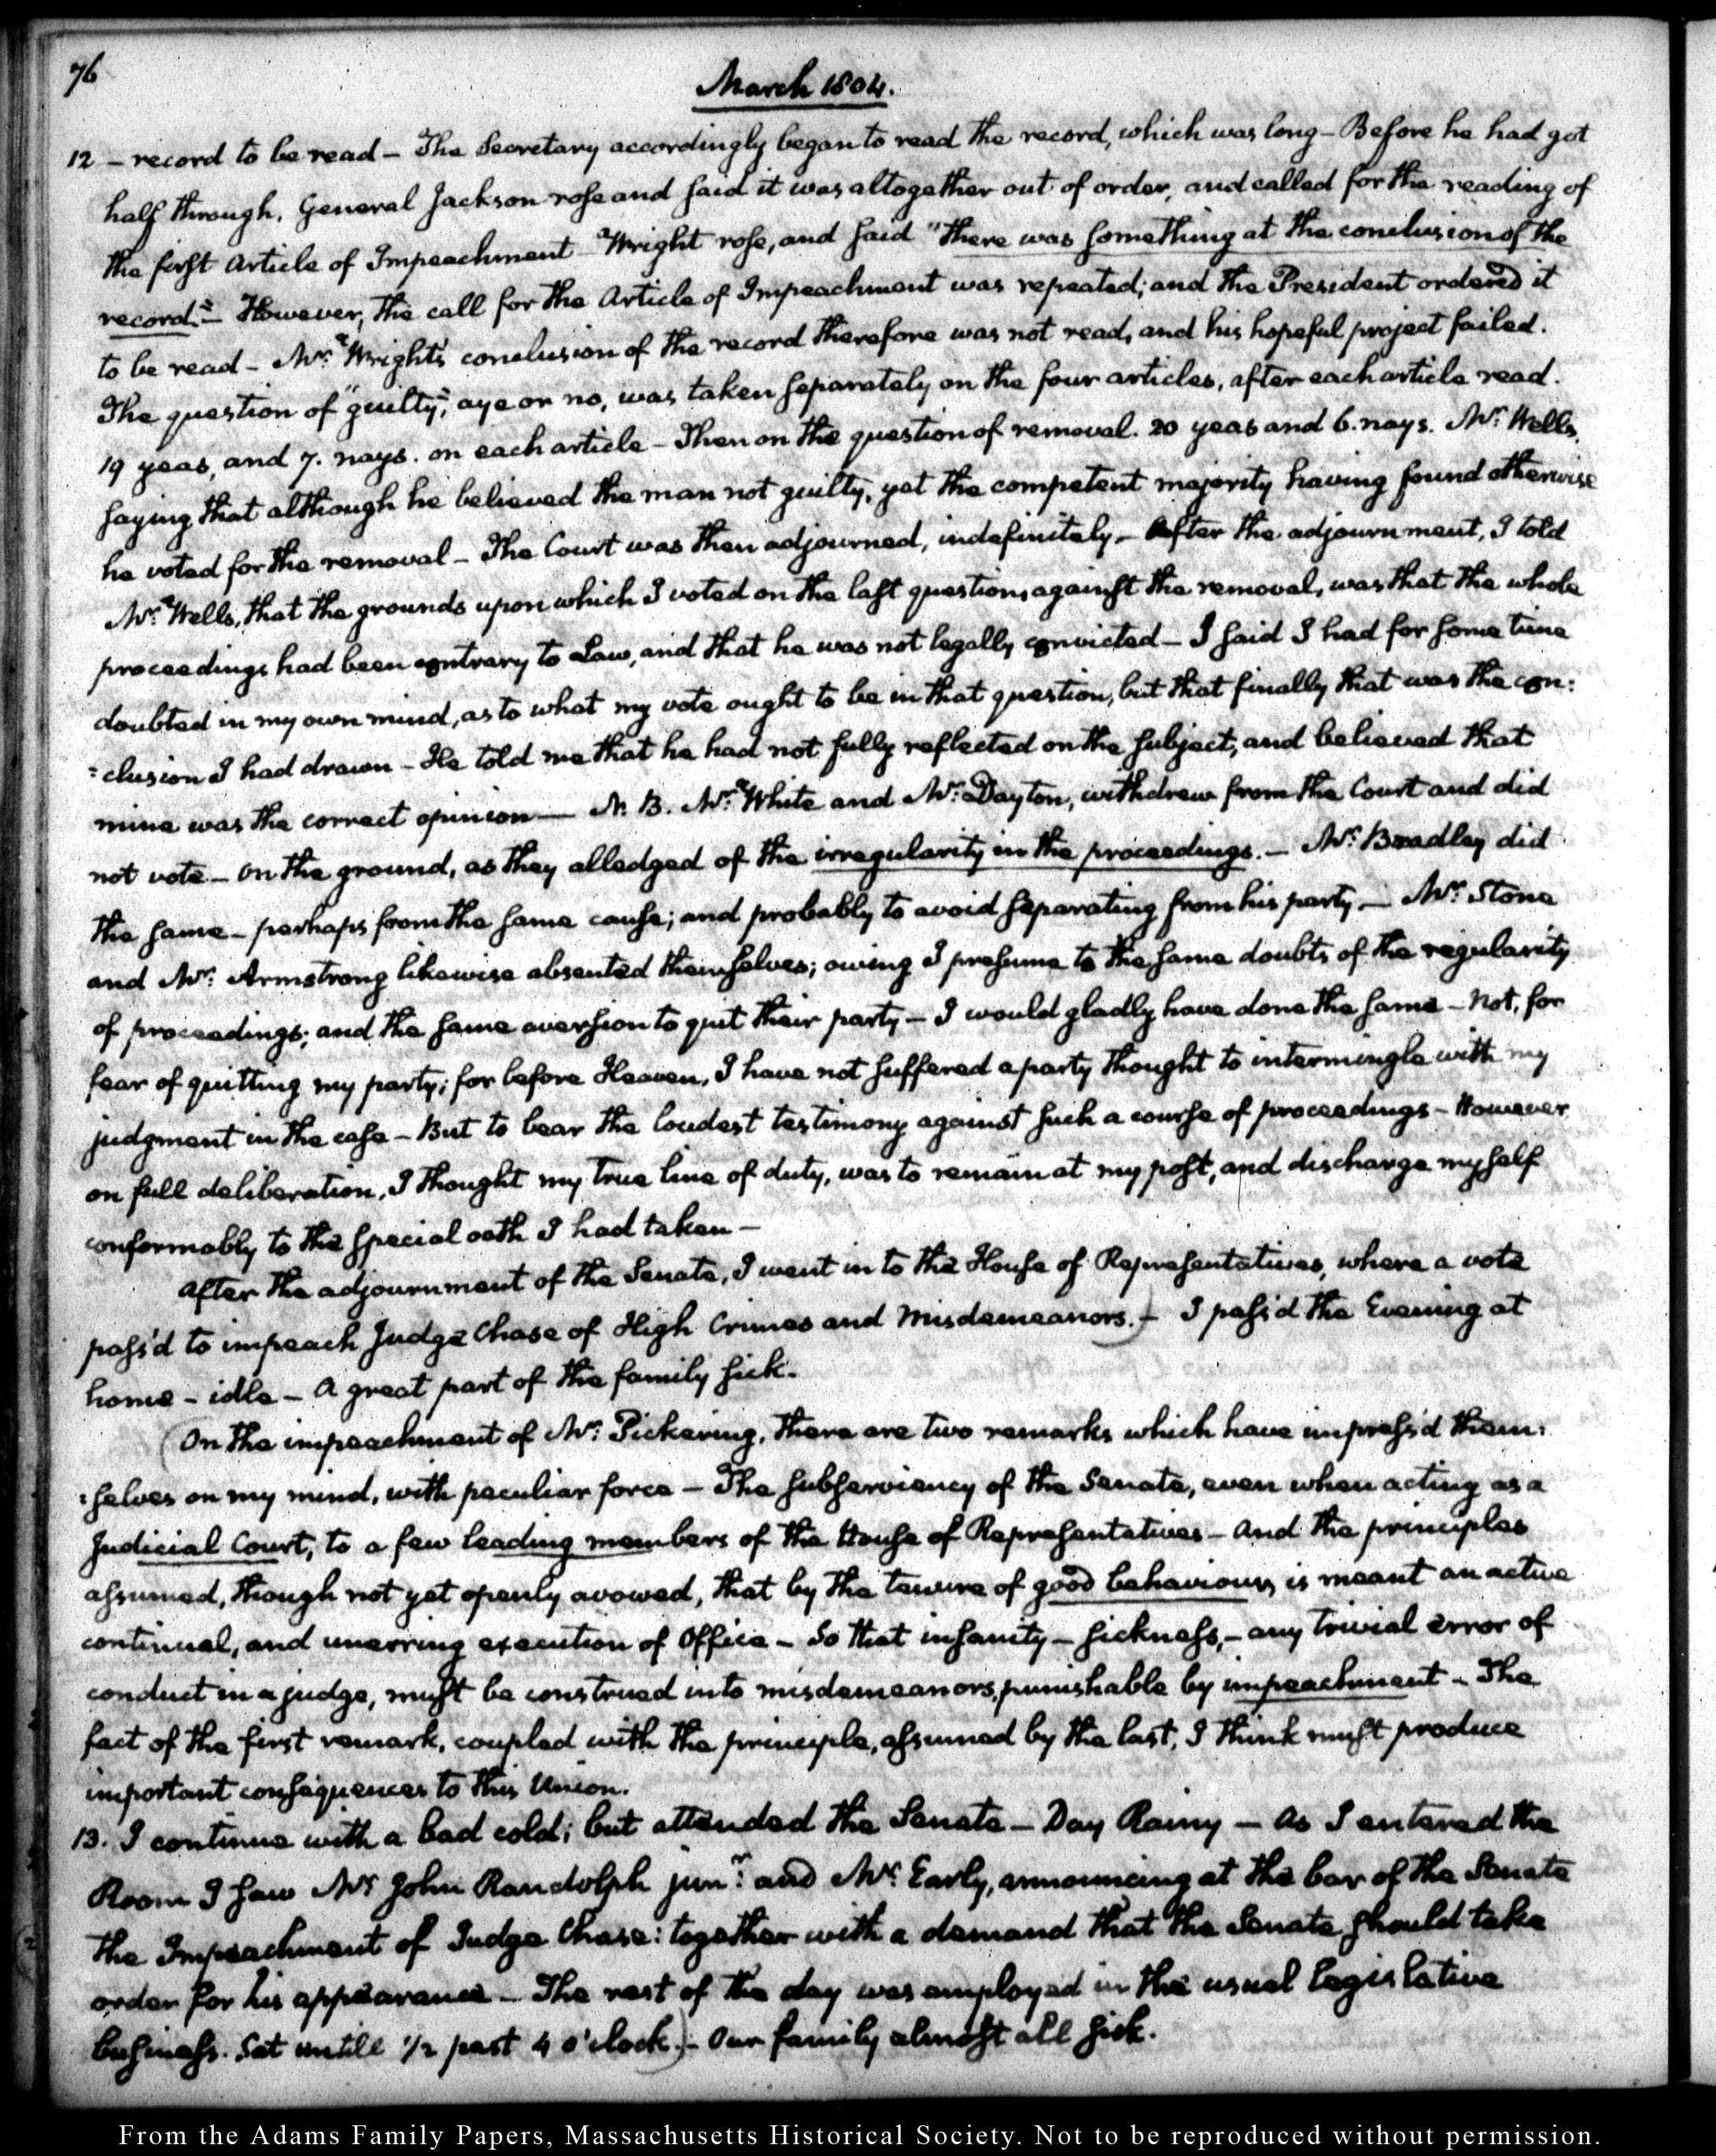 76
March 1804.
12 – record to be read – The Secretary accordingly began to read the record, which was long – Before he had got
half through, General Jackson rose and said it was altogether out of order, and called for the reading of
the first Article of Impeachment – Wright rose, and said "there was something at the conclusion of the
record." – However, the call for the Article of Impeachment was repeated; and the President ordered it
to be read – Mr: Wright's conclusion of the record therefore was not read, and his hopeful project failed.
The question of "guilty", aye or no, was taken separately on the four articles, after each article read.
19 yeas, and 7. nays. on each article – Then on the question of removal. 20 yeas and 6. nays. Mr: Wells,
saying that although he believed the man not guilty, yet the competent majority having found otherwise
he voted for the removal – The Court was then adjourned, indefinitely, – After the adjournment, I told
Mr: Wells, that the grounds upon which I voted on the last question, against the removal, was that the whole
proceedings had been contrary to Law, and that he was not legally convicted – I said I had for some time
doubted in my own mind, as to what my vote ought to be in that question, but that finally that was the con:
:clusion I had drawn – He told me that he had not fully reflected on the subject, and believed that
mine was the correct opinion — N. B. Mr: White and Mr: Dayton, withdrew from the Court and did
not vote – on the ground, as they alledged of the irregularity in the proceedings. – Mr: Bradley did
the same – perhaps from the same cause; and probably to avoid separating from his party – Mr: Stone
and Mr: Armstrong likewise absented themselves; owing I presume to the same doubts of the regularity
of proceedings; and the same aversion to quit their party – I would gladly have done the same – Not, for
fear of quitting my party; for before Heaven, I have not suffered a party thought to intermingle with my
judgment in the case – But to bear the loudest testimony against such a course of proceedings – However
on full deliberation, I thought my true line of duty, was to remain at my post, and discharge myself
conformably to the special oath I had taken –
After the adjournment of the Senate, I went in to the House of Representatives, where a vote
pass'd to impeach Judge Chase of High Crimes and Misdemeanors.) – I pass'd the Evening at
home – idle – A great part of the family sick.
(On the impeachment of Mr: Pickering, there are two remarks which have impress'd them:
:selves on my mind, with peculiar force – The subserviency of the Senate, even when acting as a
Judicial Court, to a few leading members of the House of Representatives – And the principles
assumed, though not yet openly avowed, that by the tenure of good behaviour, is meant an active
continual, and unerring execution of Office – So that insanity – sickness, – any trivial error of
conduct in a judge, must be construed into misdemeanors, punishable by impeachment – The
fact of the first remark, coupled with the principle, assumed by the last, I think must produce
important consequences to this Union.
13. I continue with a bad cold; but attended the Senate – Day Rainy – As I entered the
Room I saw Mr: John Randolph junr: and Mr: Early, announcing at the bar of the Senate
the Impeachment of Judge Chase: together with a demand that the Senate should take
order for his appearance – The rest of the day was employed in the usual legislative
business. Sat untill 1/2 past 4 o'clock.) – Our family almost all sick.
From the Adams Family Papers, Massachusetts Historical Society. Not to be reproduced without permission.